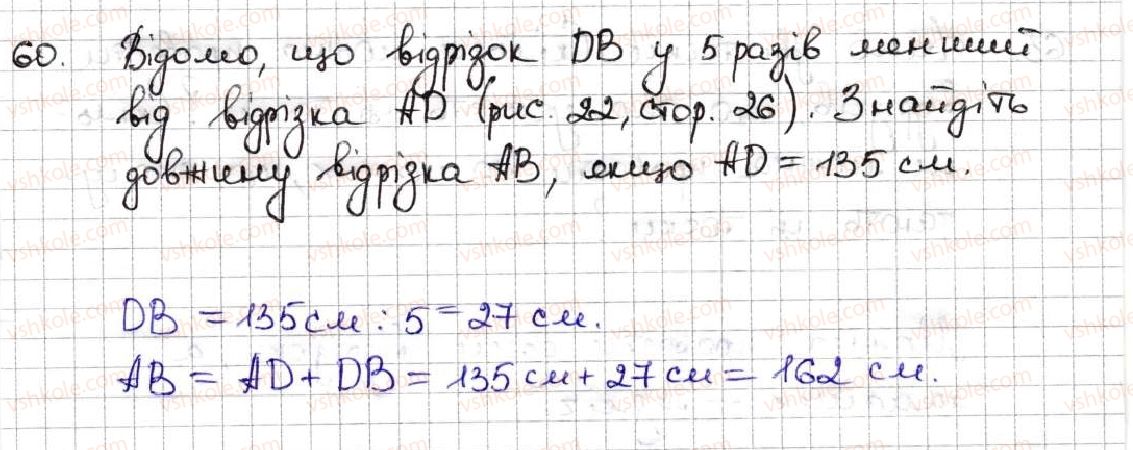 60. Відомо, що відрізок DB у 5 разів менший
від відрізка AD (рис. 22, стор. 26). Знайдіть
довжину відрізка AB, якщо AD = 135 см.
DB = 135 см : 5 = 27 см.
AB = AD + DB = 135 см + 27 см = 162 см.